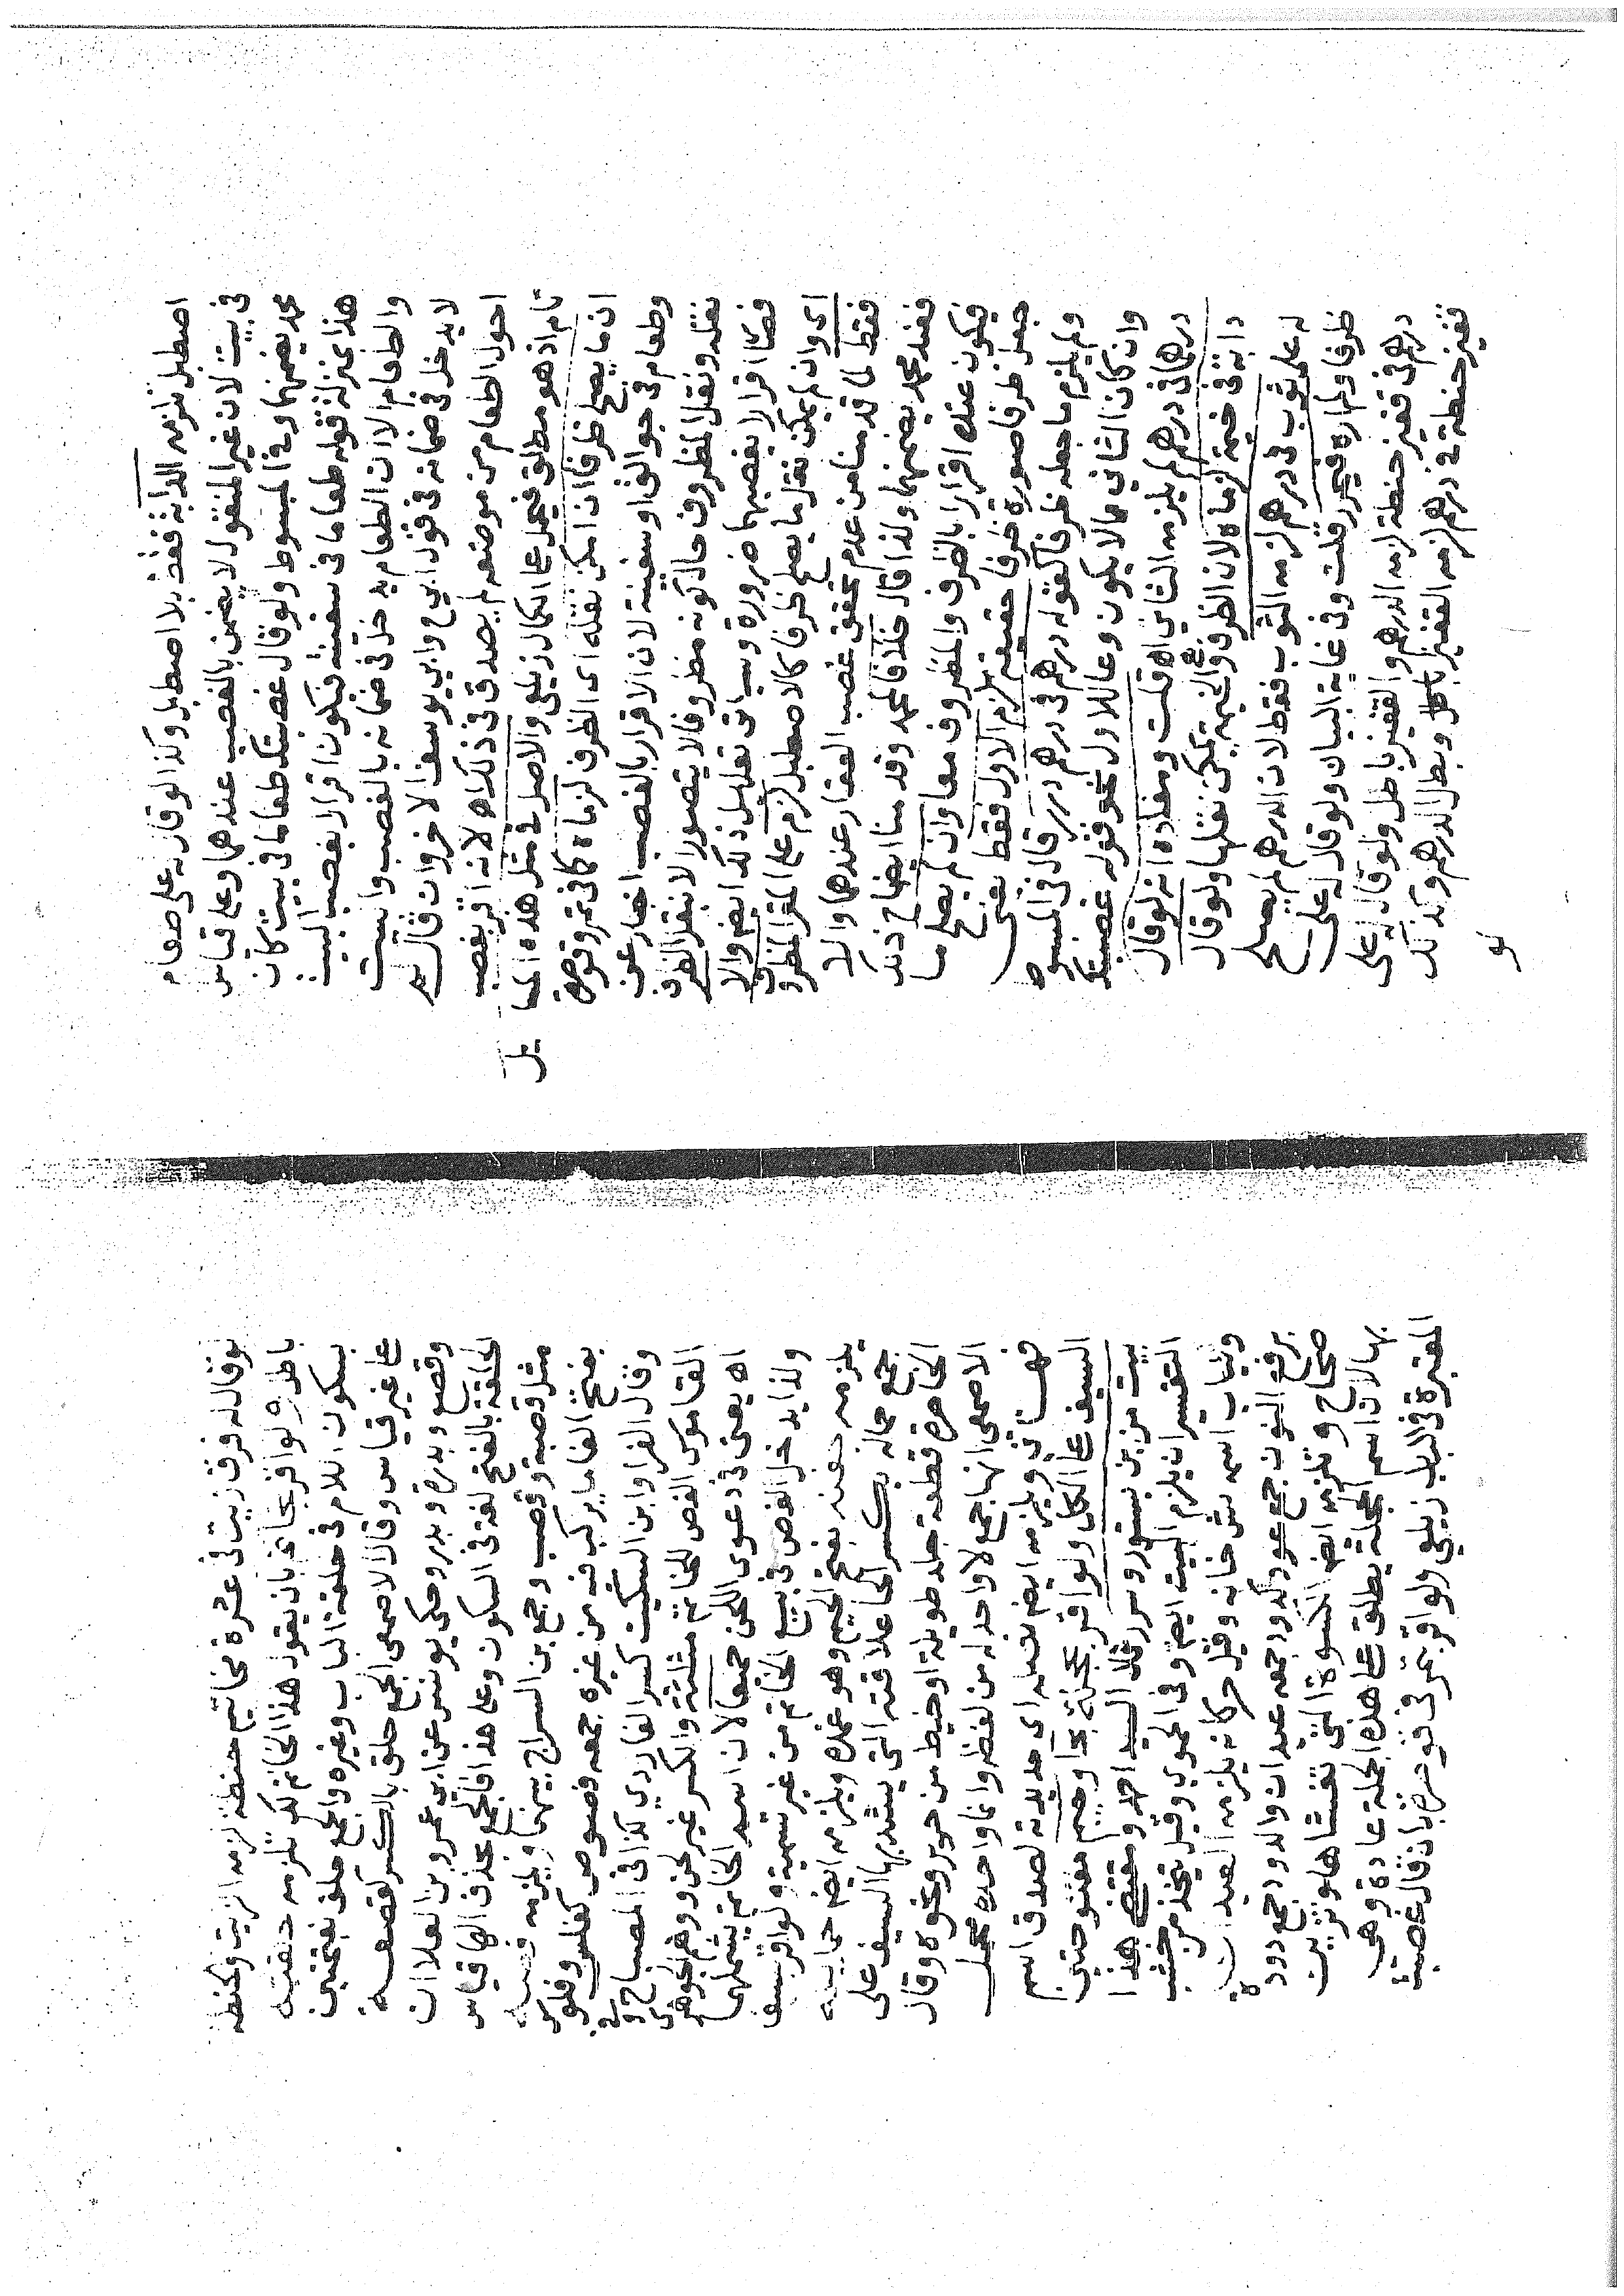 اصطبل تلزمه الدابة فقط بلا اصطبل وكذا لو قال له على طعام
في بيت لان غير المنقول لا يضمن بالغصب عندهما وعلى قياس
محمد يضمنهما وفي المبسوط ولو قال غصبتك طعاما في بيت كان
هذا بمنزلة قوله طعاما في سفينة فيكون اقرارا بغصب البيت
والطعام الا ان الطعام يدخل في ضمانه بالغصب والبيت
لا يدخل في ضمانه في قول ابي ح وابي يوسف الاخر وان قال لم
احول الطعام من موضعه لم يصدق في ذلك اه لانه اقر بغصب
تام اذ هو مطلق فيحمل على الكمال زيلعي والاصل في مثل هذه المسايل
ان ما يصلح ظرفا ان امكن نقله اي الظرف لزماه كما في تمر في قوصرة
وطعام في جوالق او سفينة لان الاقرار بالغصب اخبار عن
نقله ونقل المظروف حال كونه مظروفا لا يتصور الا بنقل الظرف
فصار اقرارا بغصبهما ضرورة وسياتي تعليل ذلك ايض والا
اي وان لم يمكن نقل ما يصلح ظرفا كالاصطبل لزم على المقر المظروف
فقط لما قدمنا من عدم تحقق غصب العقار عندهما والا
فعند محمد يضمنهما ولذا قال خلافا لمحمد وقدمنا ايضاح ذلك
فيكون عنده اقرارا بالظرف والمظروف معا وان لم يصلح ما
جعل ظرفا صورة ظرفا حقيقة لزم الاول فقط يعني
ولم يلزم ما جعله ظرفا كقوله درهم في درهم درر قال في المبسوط
وان كان الثاني مما لا يكون وعا للاول نحو قوله غصبتك
درهما في درهم لم يلزمه الثاني اه قلت ومفاده انه لو قال
دابة في خيمة لزماه لان الظرف وهو الخيمة يمكن نقلها ولو قال
له على ثوب في درهم لزمه الثوب فقط لان الدرهم لم يصلح
ظرفا ولم اره فيحرر قلت وفي غاية البيان ولو قال له على
درهم في قفيز حنطة لزمه الدرهم والقفيز باطل ولو قال له على
قفيز حنطة في درهم لزمه القفيز باطل وبطل الدرهم وكذلك
لو
لو قال له فرق زيت في عشرة مخاتيم حنطة لزمه الزيت والحنطه
باطله ولو اقر بخاتم بان يقول هذا الخاتم لك تلزمه حلقته
بسكون اللام في حلقة الباب وغيره والجمع حلق بفتحتين
على غير قياس وقال الاصمعي الجمع حلق بالكسر كقصعة
وقصع وبدرة وبدر وحكى يونس عن ابي عمرو بن العلا ان
الحلقة بالفتح لغة في السكون وعلى هذا فالجمع بحذف الها قياس
مثل قصبة وقصب وجمع بن السراج بينهما ويلزمه فصه
بفتح الفا ما يركب فيه من غيره جمعه فصوص كفلس وفلوس
وقال الفرا وابن السكيت كسر الفا ردي كذا في المصباح وفي
القاموس الفص للخاتم مثلثة والكسر غير لحن ووهم الجوهري
اه يعني في دعوى اللحن جميعا لان اسم الخاتم يشملهما
ولذا يدخل الفص في بيع الخاتم من غير تسمية ولو اقر بسيف
يلزمه جفنه بفتح الجيم وهو غمده ويلزمه ايض حمايله
جمع حمالة بكسر الحا علاقته التي يشد بها السيف على
الخاصرة قطعة جلد طويلة او خيط من حرير ونحوه وقال
الاصمعي انها جمع لا واحد له من لفظه وانما واحده محمل
قهستاني ويلزمه ايض نصله اي حديدته لصدق اسم
السيف على الكل ولو اقر بحجلة بحا وجيم مفتوحتين
بيت مزين بستور وسرر قال السيد احمد ومقتضى هذا
التفسير ان يلزم البيت ايض وفي الحموي وقيل يتخذ من خشب
وثياب اسمه شخانه وقيل حركانه يلزمه العيدان
برفع النون جمع عود كدود جمعه عيدان والدود جمع دودة
صحاح وتلزمه ايض الكسوة التي تغشاها وتزين
بها لان اسم الحجلة يطلق على هذه الجملة عادة وهي
المعتبرة في الباب زيلعي ولو اقر بتمر في قوصرة بان قال غصبت